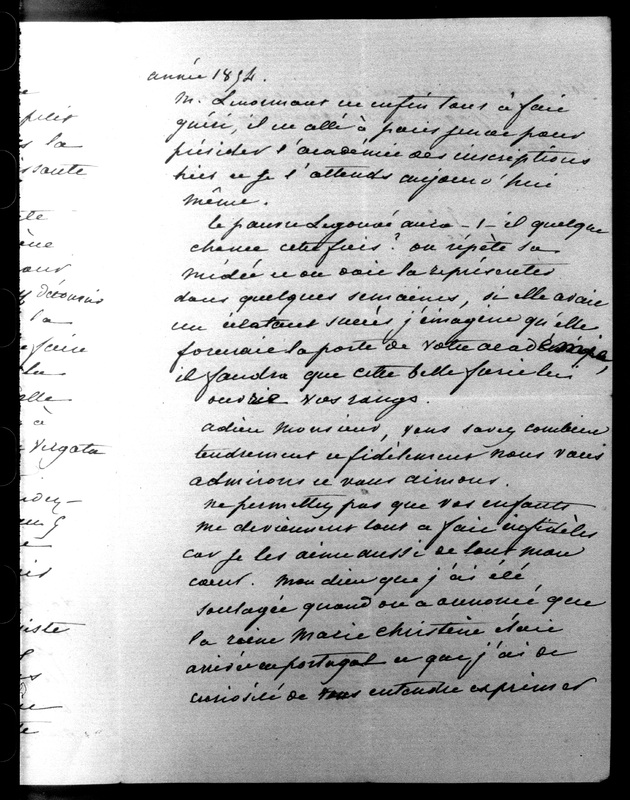 année 1854.
M. Lenormant est enfin tout à fait
guéri, il est allé à paris jeudi pour
présider l'académie des inscriptions
hier et je l'attends aujourd'hui
même.
le pauvre Legouvé aura-t-il quelque
chance cette fois? on répète sa
médée et on doit la représenter
dans quelques semaines, si elle avait
un éclatant succès j'imagine qu'elle
forcerait la porte de votre académie,
il faudra que cette belle furie lui
ouvrît vos rangs.
adieu Monsieur, vous savez combien
tendrement et fidèlement nous vous
admirons et vous aimons.
ne permettez pas que vos enfants
me deviennent tout à fait infidèles
car je les aime aussi de tout mon
cœur. mon dieu que j'ai été
soulagée quand on a annoncé que
la reine Marie Christine était
arrivée en portugal et que j'ai de
curiosité de vous entendre exprimer
la
issante
ène
décousus
la
faire
elle
à
Vergata